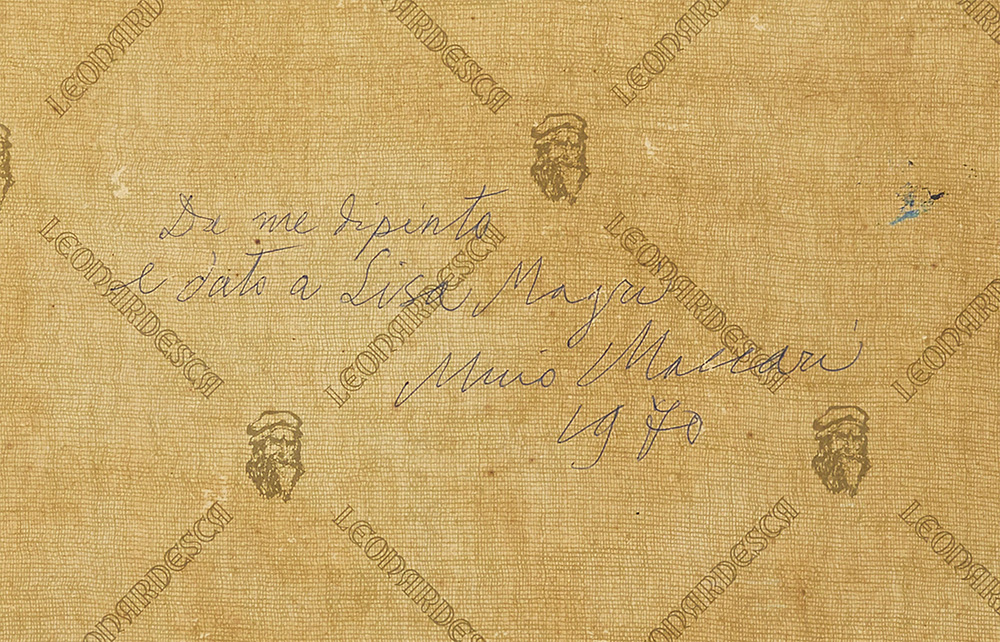 LEONARDESCA
LEONARDESCA
LEONARDESCA
Da me dipinto
e dato a Lisa Magri
Mino Maccari
1970
LEONARDESCA
LEONARDESCA
LEONARDESCA
LEONARDESCA
LEONARDESCA
LEONARDESCA
LEONARDESCA
LEONARDESCA